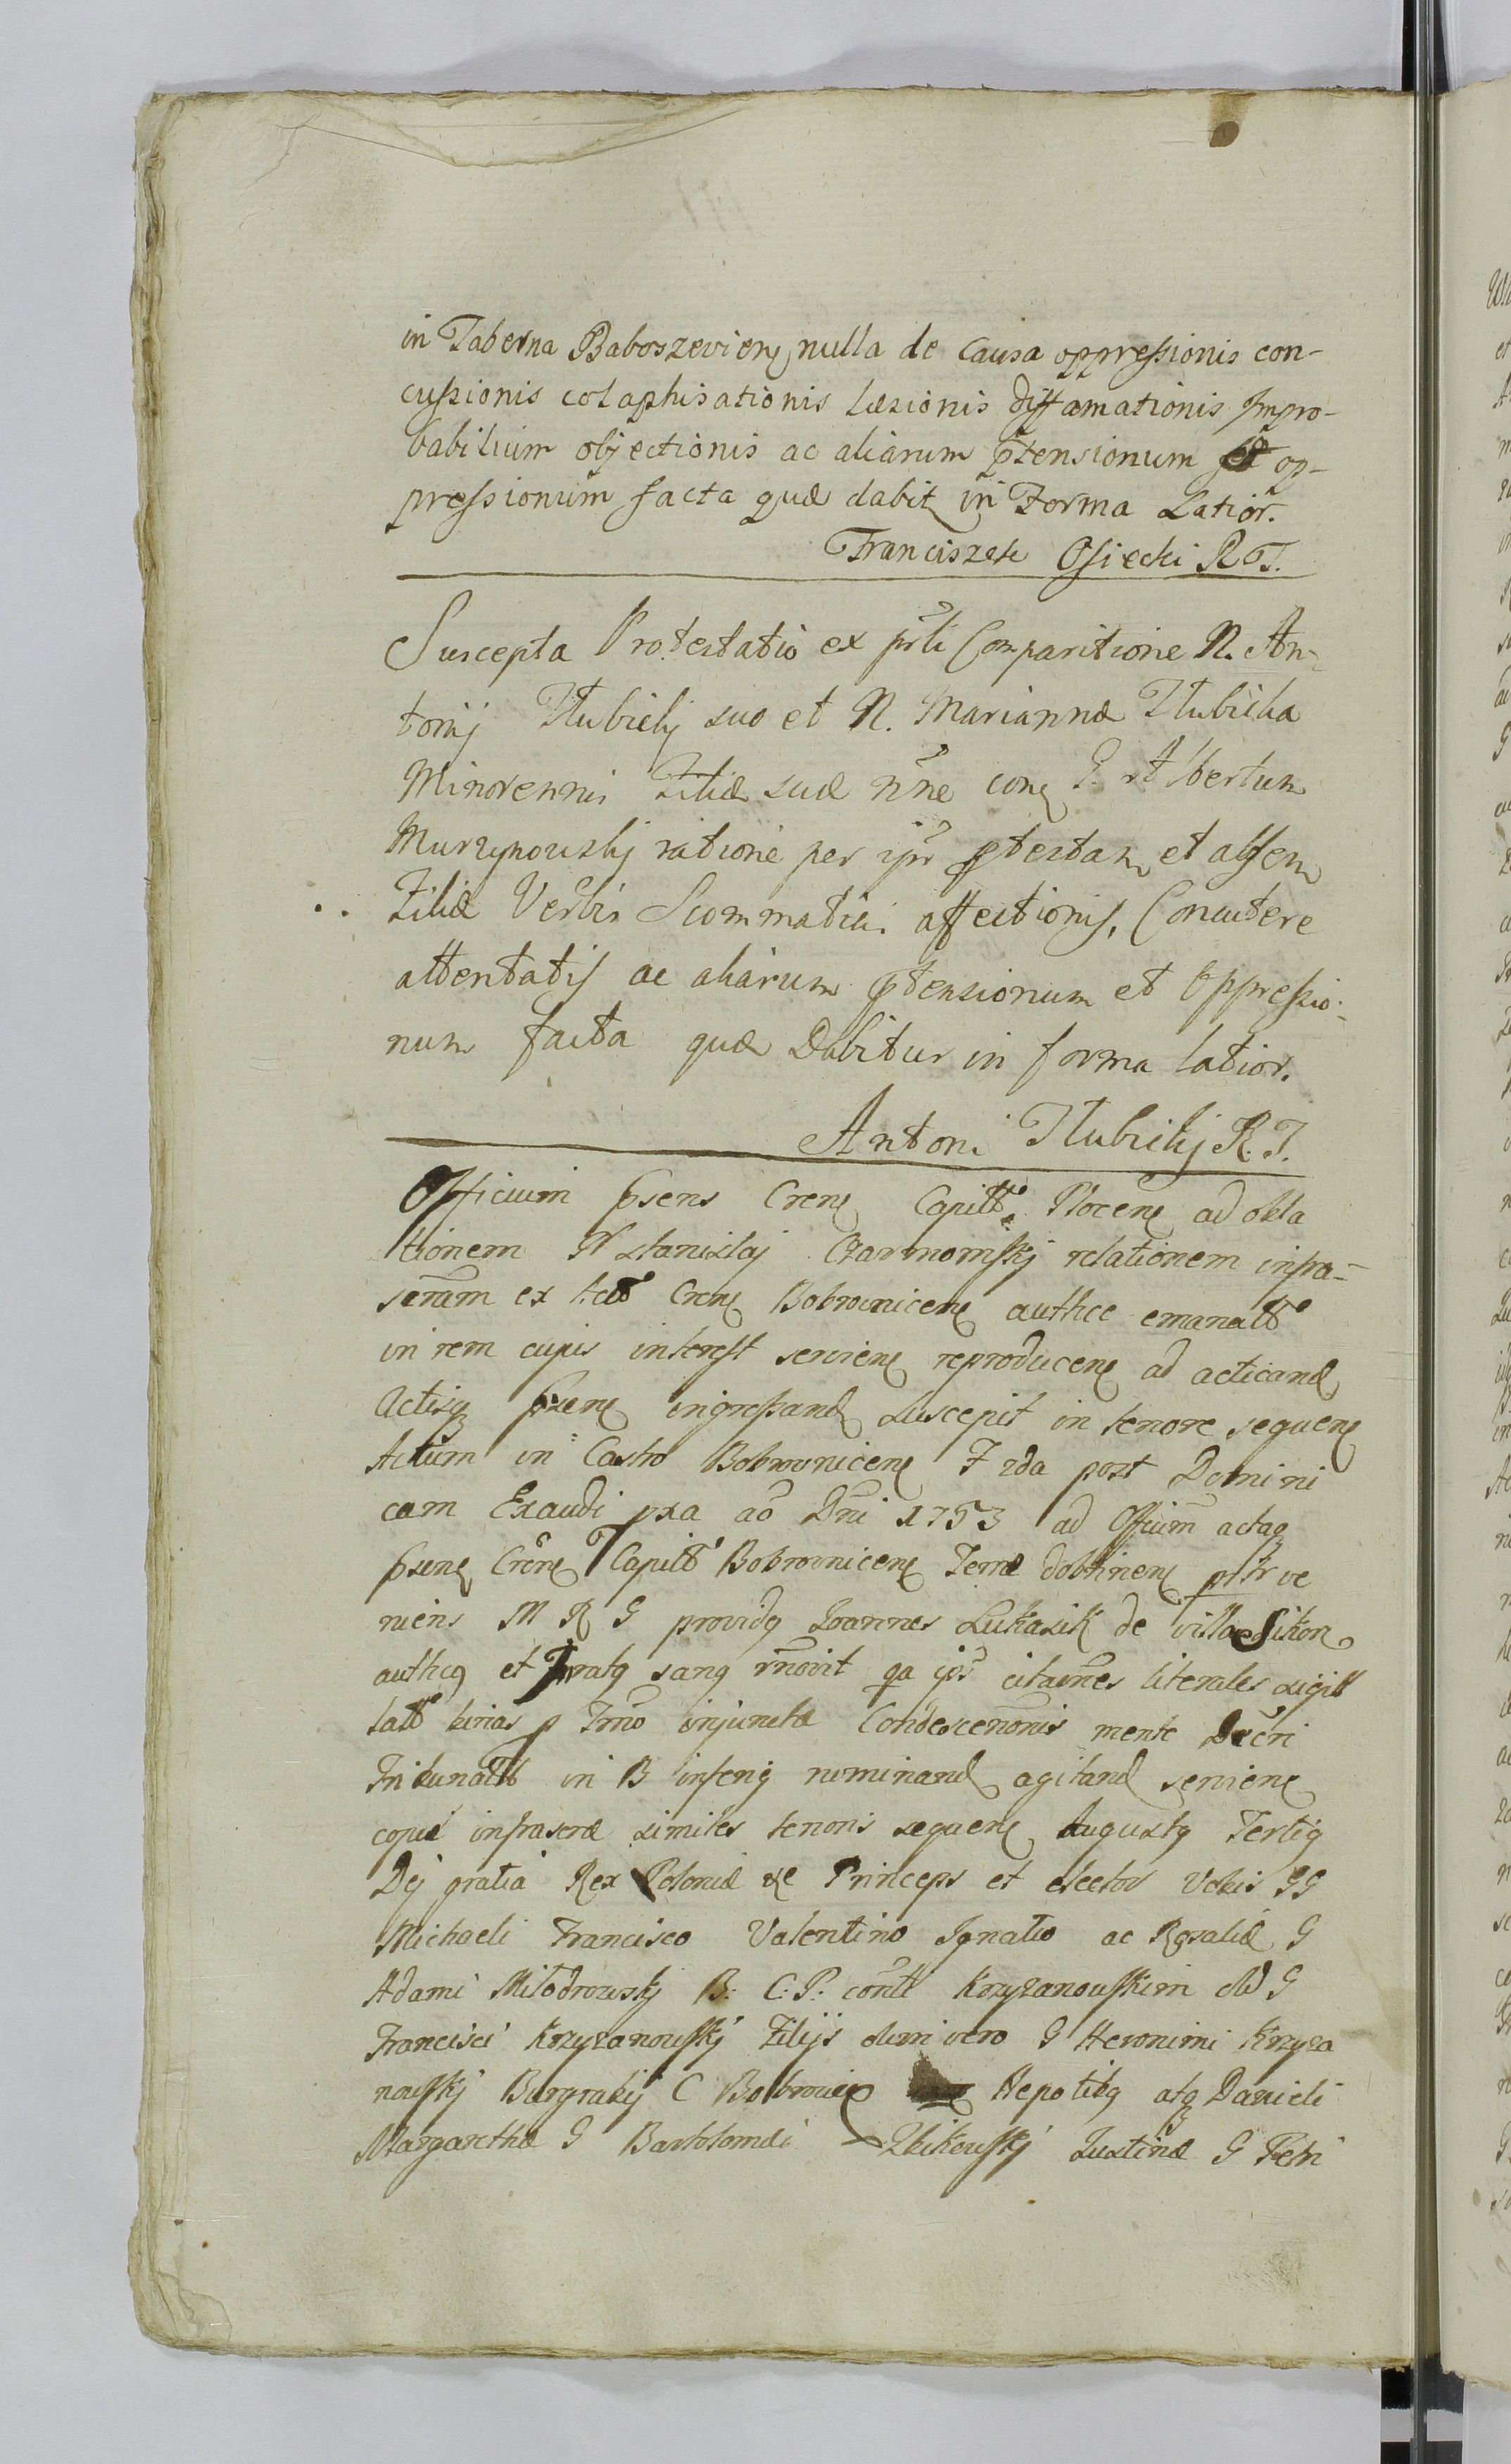 in Taberna Baboszevien nulla de Causa oppressionis con-
cussionis colaphisationis læsionis diffamationis Impro-
babilium objectionis ac aliarum ptensionum et op-
pressionum facta quæ dabit in Forma Latior.
Franciszek Osiecki R T.
Suscepta Protestatio ex prli Comparitione N. An-
tonij Hubickj suo et N. Mariannæ Hubicka
Minorennis Filiæ suæ nne con G. Albertum
Murzynowskj ratione per ips ptestan et assen
Filiæ Verbis Scommatici affectionis, Concutere
attentatis ac aliarum ptensionum et Oppressio-
num facta quæ Dabitur in forma latior.
Antoni Hubickj R. T.
Officium psens Crens Capitt Plocens ad obla
tionem N Stanislaj Czarnomskj relationem infra-
scram ex Actt Crens Bobrownicens authce emanatt
in rem cujus interest serviens reproducens ad acticand
Actisq psens ingrossand suscepit in tenore sequens
Actum in Castro Bobrownicens F 2da post Domini
cam Exaudi pxa ao Dni 1753 ad Officium actaq
psens Crens Capitt Bobrownicens Terræ Dobrinens psltr ve
niens M R G providq Joannes Lukasik de villa Sikon
authcq et Jratq sanq rnovit qa ips citaones literales sigill
latt binas p Jmo injunctæ Condescensionis mente Decri
Tribunalitt in B infeng nominand agitand serviens
copiæ infrascræ similes tenoris sequens Augustq Tertiq
Dej gratia Rex Poloniæ &c Princeps et elector Vobis GG
Michaeli Francisco Valentino Ignatio ac Rosaliæ G
Adami Miłodrowskj B: C: P: contt Krzyzanowskim old G
Francisci Krzyzanowskj Filijs olim vero G Heronimi Krzyza
nowskj Burgrabij C Bobrowicen Nepotibq atq Danieli
Margarethæ G Bartolomæi Zbikowskj Justinæ G Petri